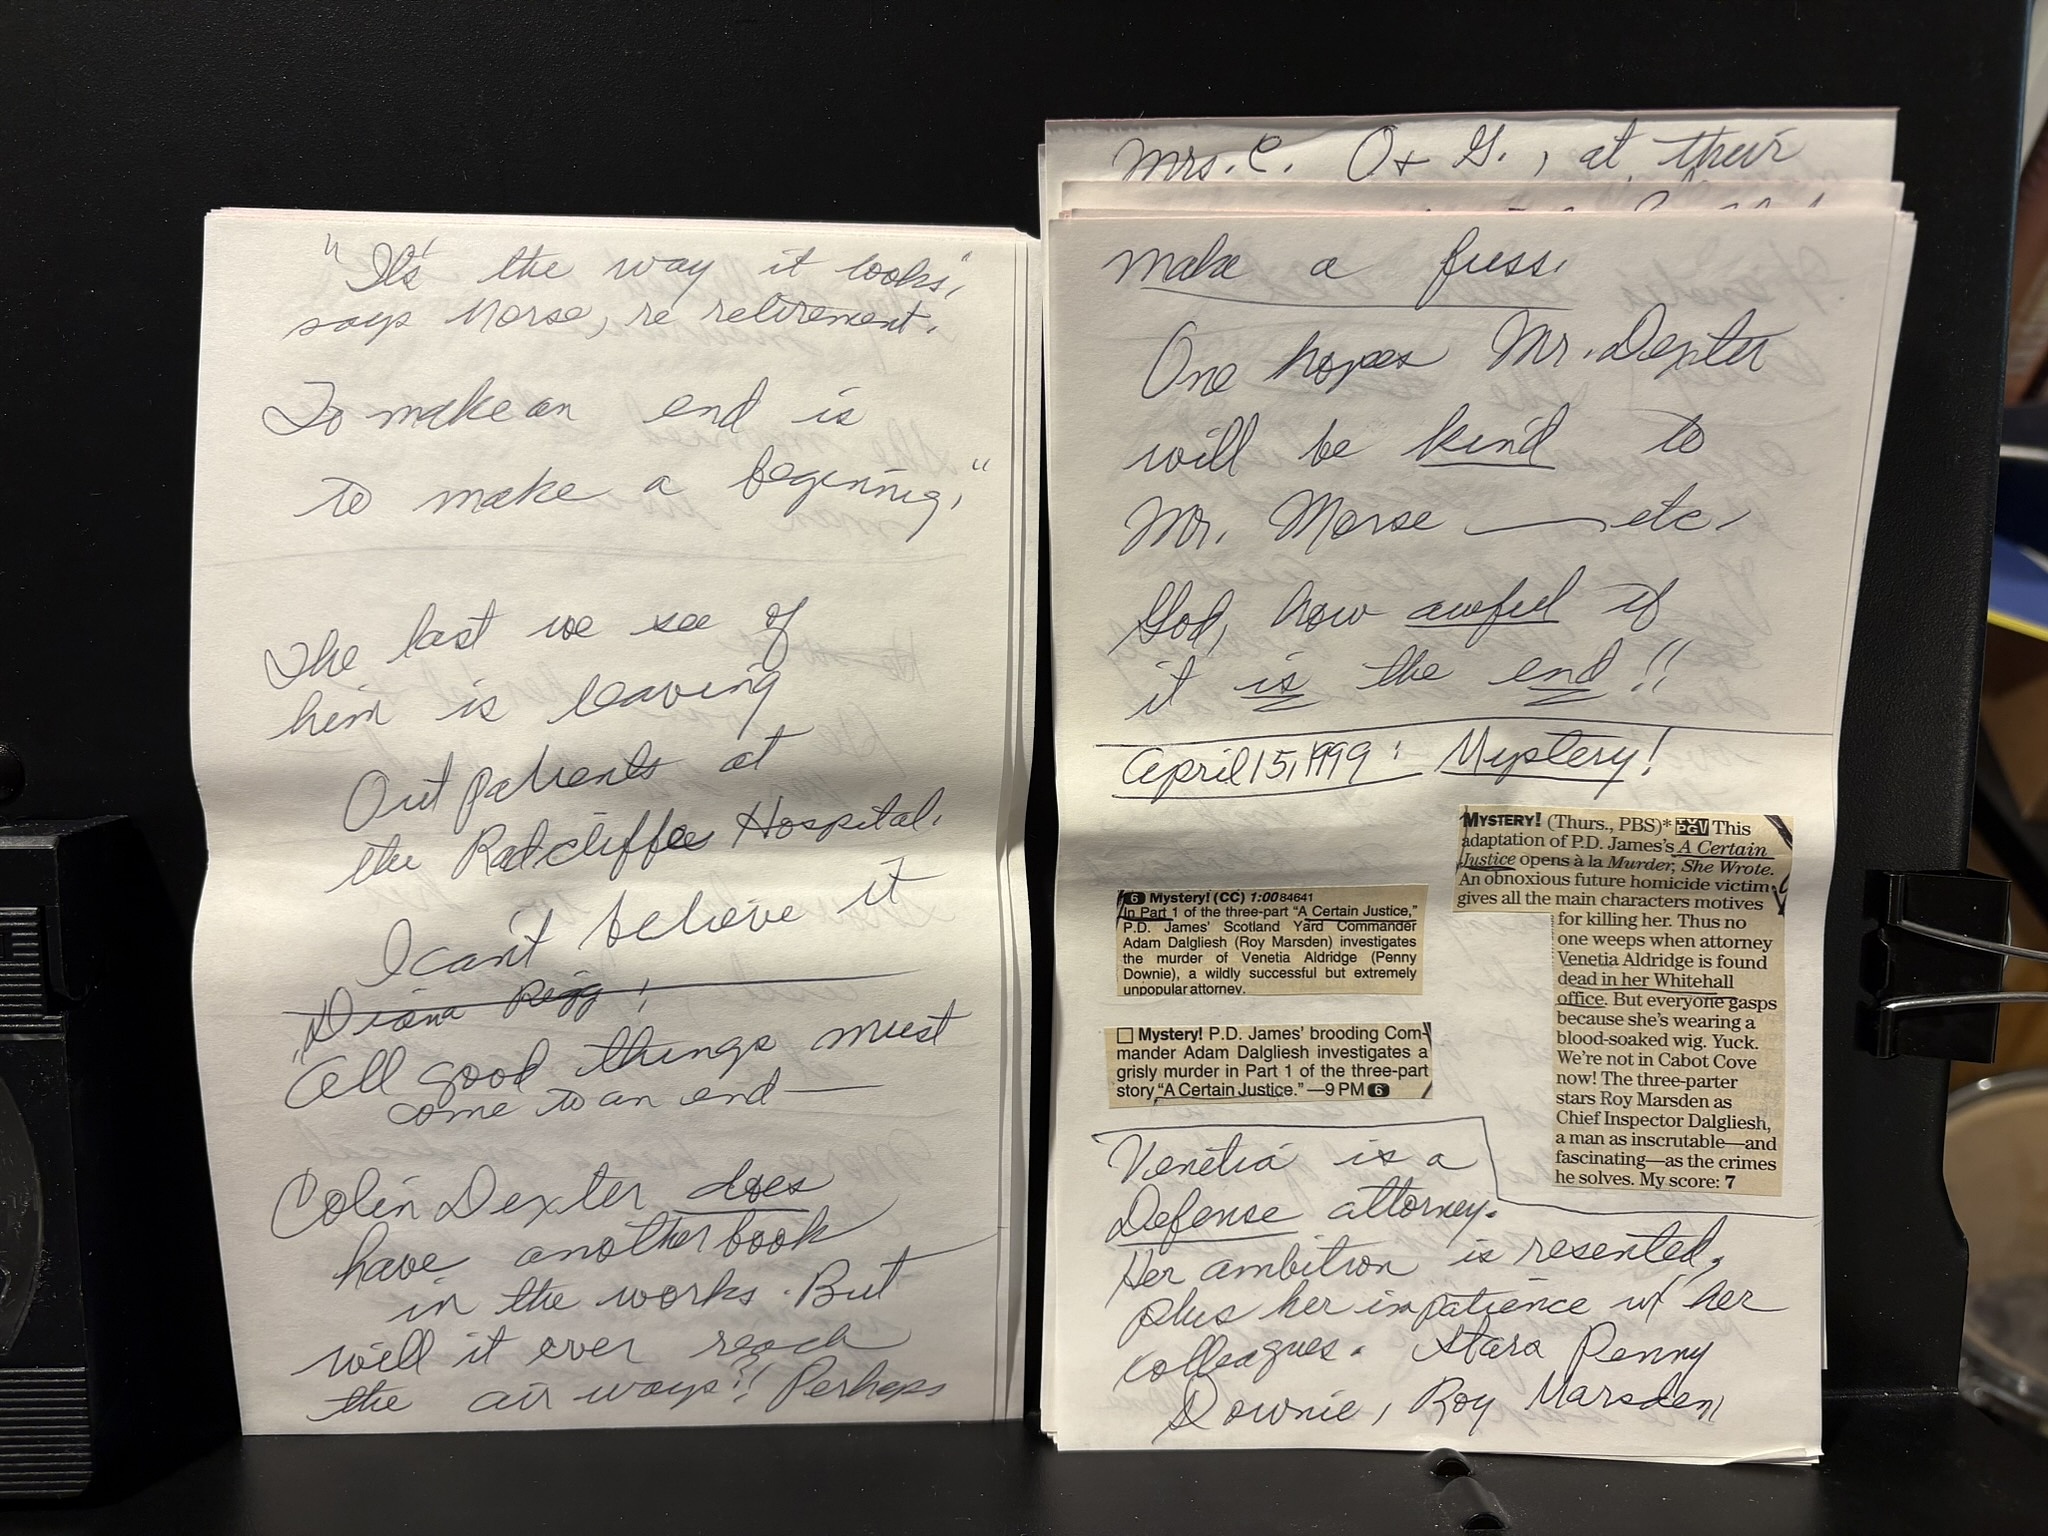 "It's the way it looks,"
says Morse, re retirement.
To make an end is
to make a beginning."
The last we see of
him is leaving
Out patients at
the Radcliffe Hospital.
I can't believe it
Diana Rigg:
"All good things must
come to an end —
Colin Dexter does
have another book
in the works. But
will it ever reach
the air ways?! Perhaps
Mrs. C. O & G., at their
make a fuss.
One hopes Mr. Dexter
will be kind to
Mr. Morse — etc.
God, how awful if
it is the end!!
April 15, 1999: Mystery!
6 Mystery! (CC) 1:00 84641
In Part 1 of the three-part "A Certain Justice,"
P.D. James' Scotland Yard Commander
Adam Dalgliesh (Roy Marsden) investigates
the murder of Venetia Aldridge (Penny
Downie), a wildly successful but extremely
unpopular attorney.
Mystery! P.D. James' brooding Com-
mander Adam Dalgliesh investigates a
grisly murder in Part 1 of the three-part
story "A Certain Justice." —9 PM 6
MYSTERY! (Thurs., PBS)* TV PGV This
adaptation of P.D. James's A Certain
Justice opens à la Murder, She Wrote.
An obnoxious future homicide victim
gives all the main characters motives
for killing her. Thus no
one weeps when attorney
Venetia Aldridge is found
dead in her Whitehall
office. But everyone gasps
because she's wearing a
blood-soaked wig. Yuck.
We're not in Cabot Cove
now! The three-parter
stars Roy Marsden as
Chief Inspector Dalgliesh,
a man as inscrutable—and
fascinating—as the crimes
he solves. My score: 7
Venetia is a
Defense attorney.
Her ambition is resented,
plus her impatience w/ her
colleagues. Stars Penny
Downie, Roy Marsden,